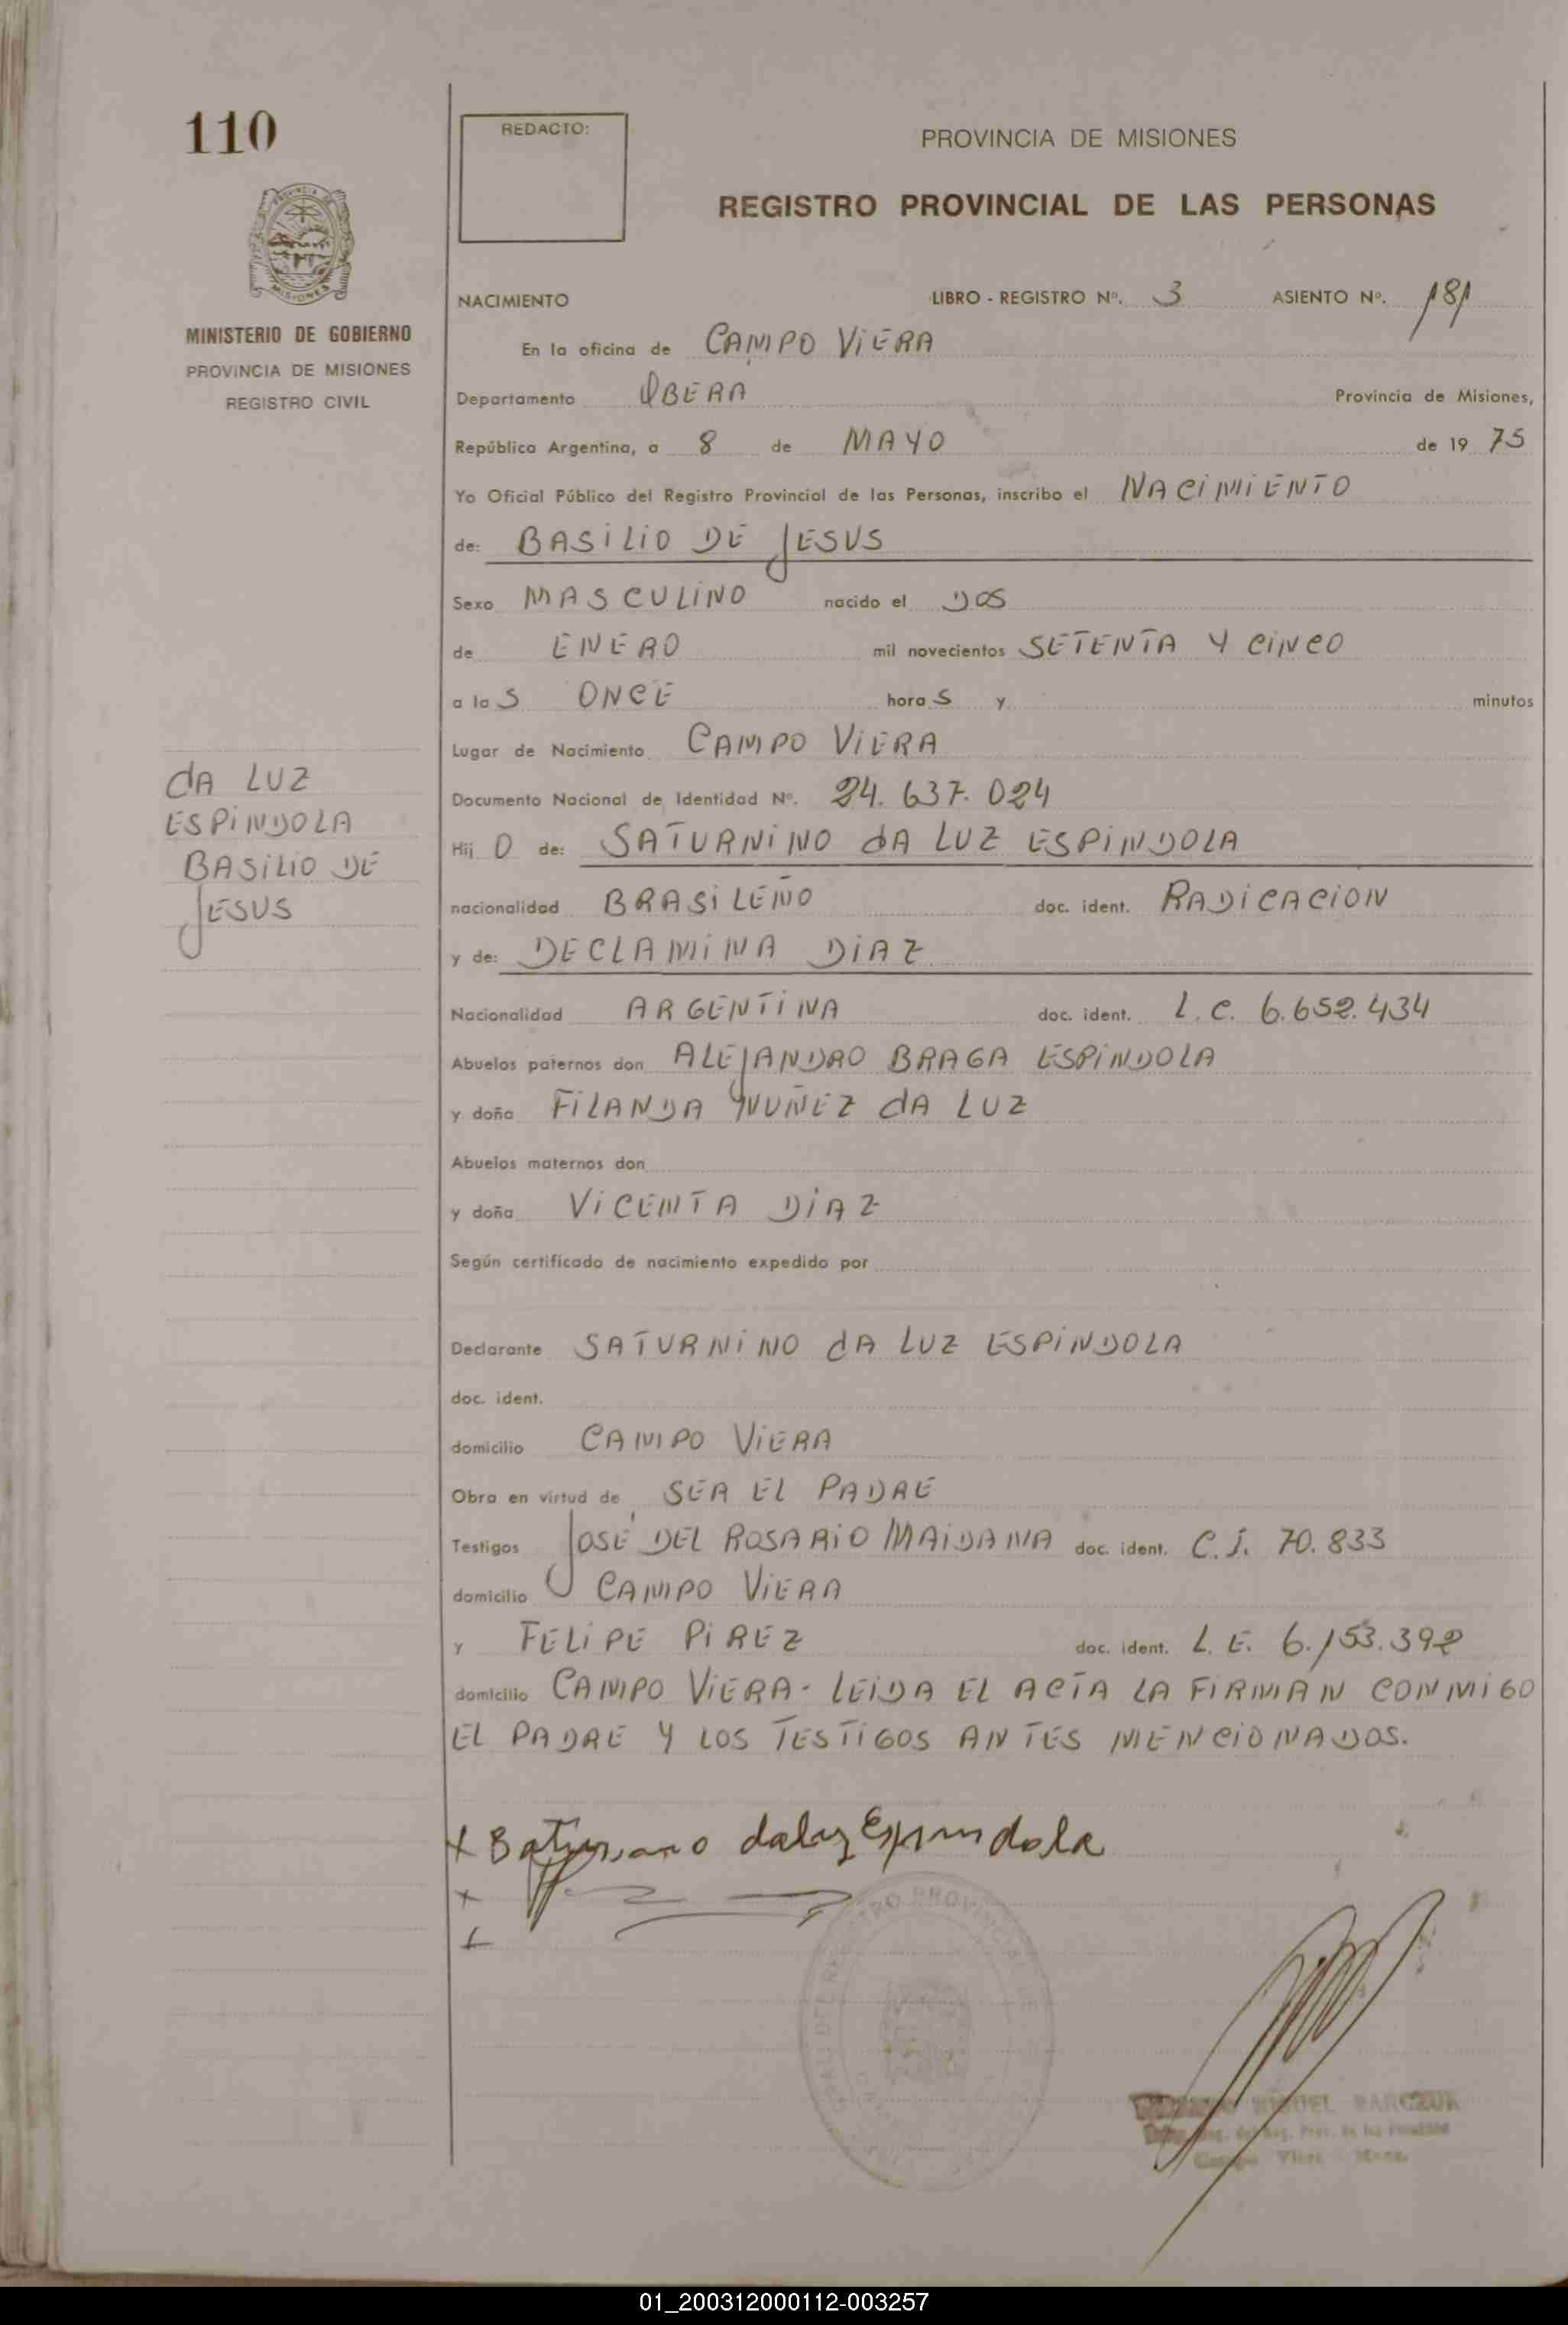 110
REDACTO:
PROVINCIA DE MISIONES
REGISTRO PROVINCIAL DE LAS PERSONAS
PROVINCIA DE
MISIONES
MINISTERIO DE GOBIERNO
PROVINCIA DE MISIONES
REGISTRO CIVIL
NACIMIENTO LIBRO - REGISTRO Nº. 3 ASIENTO Nº. 181
En la oficina de CAMPO VIERA
Departamento OBERA Provincia de Misiones,
República Argentina, a 8 de MAYO de 19 75
Yo Oficial Público del Registro Provincial de las Personas, inscribo el NACIMIENTO
de: BASILIO DE JESUS
Sexo MASCULINO nacido el DOS
de ENERO mil novecientos SETENTA Y CINCO
a las ONCE horas y minutos
Lugar de Nacimiento CAMPO VIERA
Documento Nacional de Identidad Nº. 24.637.024
Hijo de: SATURNINO dA LUZ ESPINDOLA
nacionalidad BRASILEÑO doc. ident. RADICACION
y de: DECLAMINA DIAZ
Nacionalidad ARGENTINA doc. ident. L.C. 6.652.434
Abuelos paternos don ALEJANDRO BRAGA ESPINDOLA
y doña FILANDA NUÑEZ dA LUZ
Abuelos maternos don
y doña VICENTA DIAZ
Según certificado de nacimiento expedido por
Declarante SATURNINO dA LUZ ESPINDOLA
doc. ident.
domicilio CAMPO VIERA
Obra en virtud de SER EL PADRE
Testigos JOSÉ DEL ROSARIO MAIDANA doc. ident. C.I. 70.833
domicilio CAMPO VIERA
y FELIPE PIREZ doc. ident. L.E. 6.153.392
domicilio CAMPO VIERA - LEIDA EL ACTA LA FIRMAN CONMIGO
EL PADRE Y LOS TESTIGOS ANTES MENCIONADOS.
dA LUZ
ESPINDOLA
BASILIO DE
JESUS
daluz Espindola
MIGUEL
01_200312000112-003257